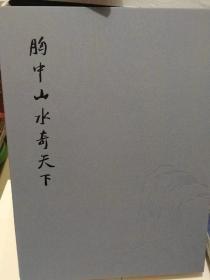 胸中山水奇天下